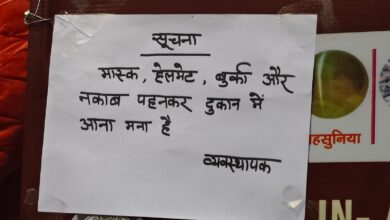 सूचना
मास्क, हेलमेट, बुर्का और
नकाब पहनकर दुकान में
आना मना है
व्यवस्थापक
हसुनिया
IN-